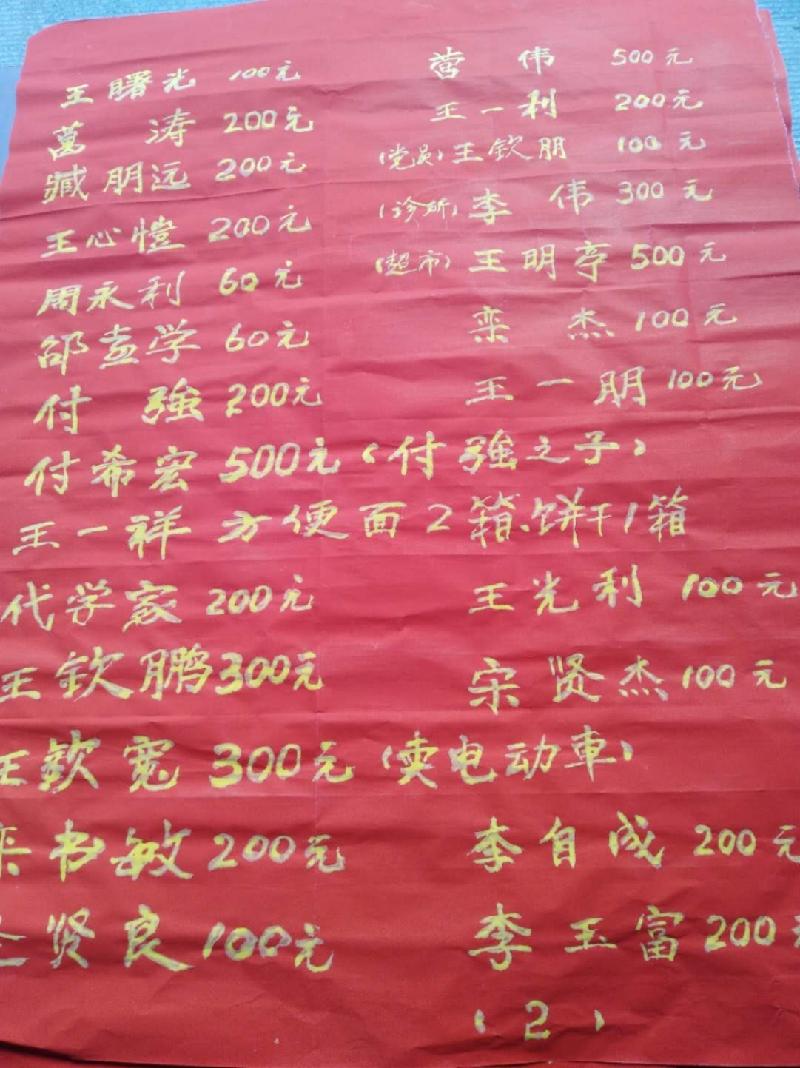 王曙光 100元 营伟 500元
萬涛 200元 王一利 200元
臧朋远 200元 (党员)王钦朋 100元
王心愷 200元 (诊所)李伟 300元
周永利 60元 (超市)王明亭 500元
邵孟学 60元 栾杰 100元
付強 200元 王一朋 100元
付希宏 500元(付強之子)
王一祥 方便面2箱、饼干1箱
代学家 200元 王光利 100元
王钦鹏 300元 宋贤杰 100元
王钦宽 300元(卖电动車)
栾书敏 200元 李自成 200元
贤良 100元 李玉富 200元
(2)